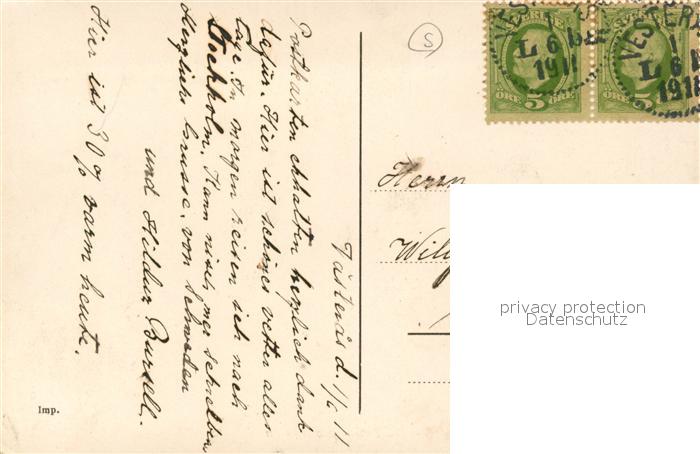 Västerås d. 1/6 11
Postkarten erhalten herzlich dank
dafür. Hier ist schönes vetter alle
tage. In morgen reisen ich nach
Stockholm. Kann nisch mer schreiben
Herzliche Grusse von Schweden
und Hildur Bursell.
Hier ist 30 g varm heute.
Imp.
S
SVERIGE
5 ÖRE 5
VESTERÅS
L 6 1911
Herrn
privacy protection
Datenschutz